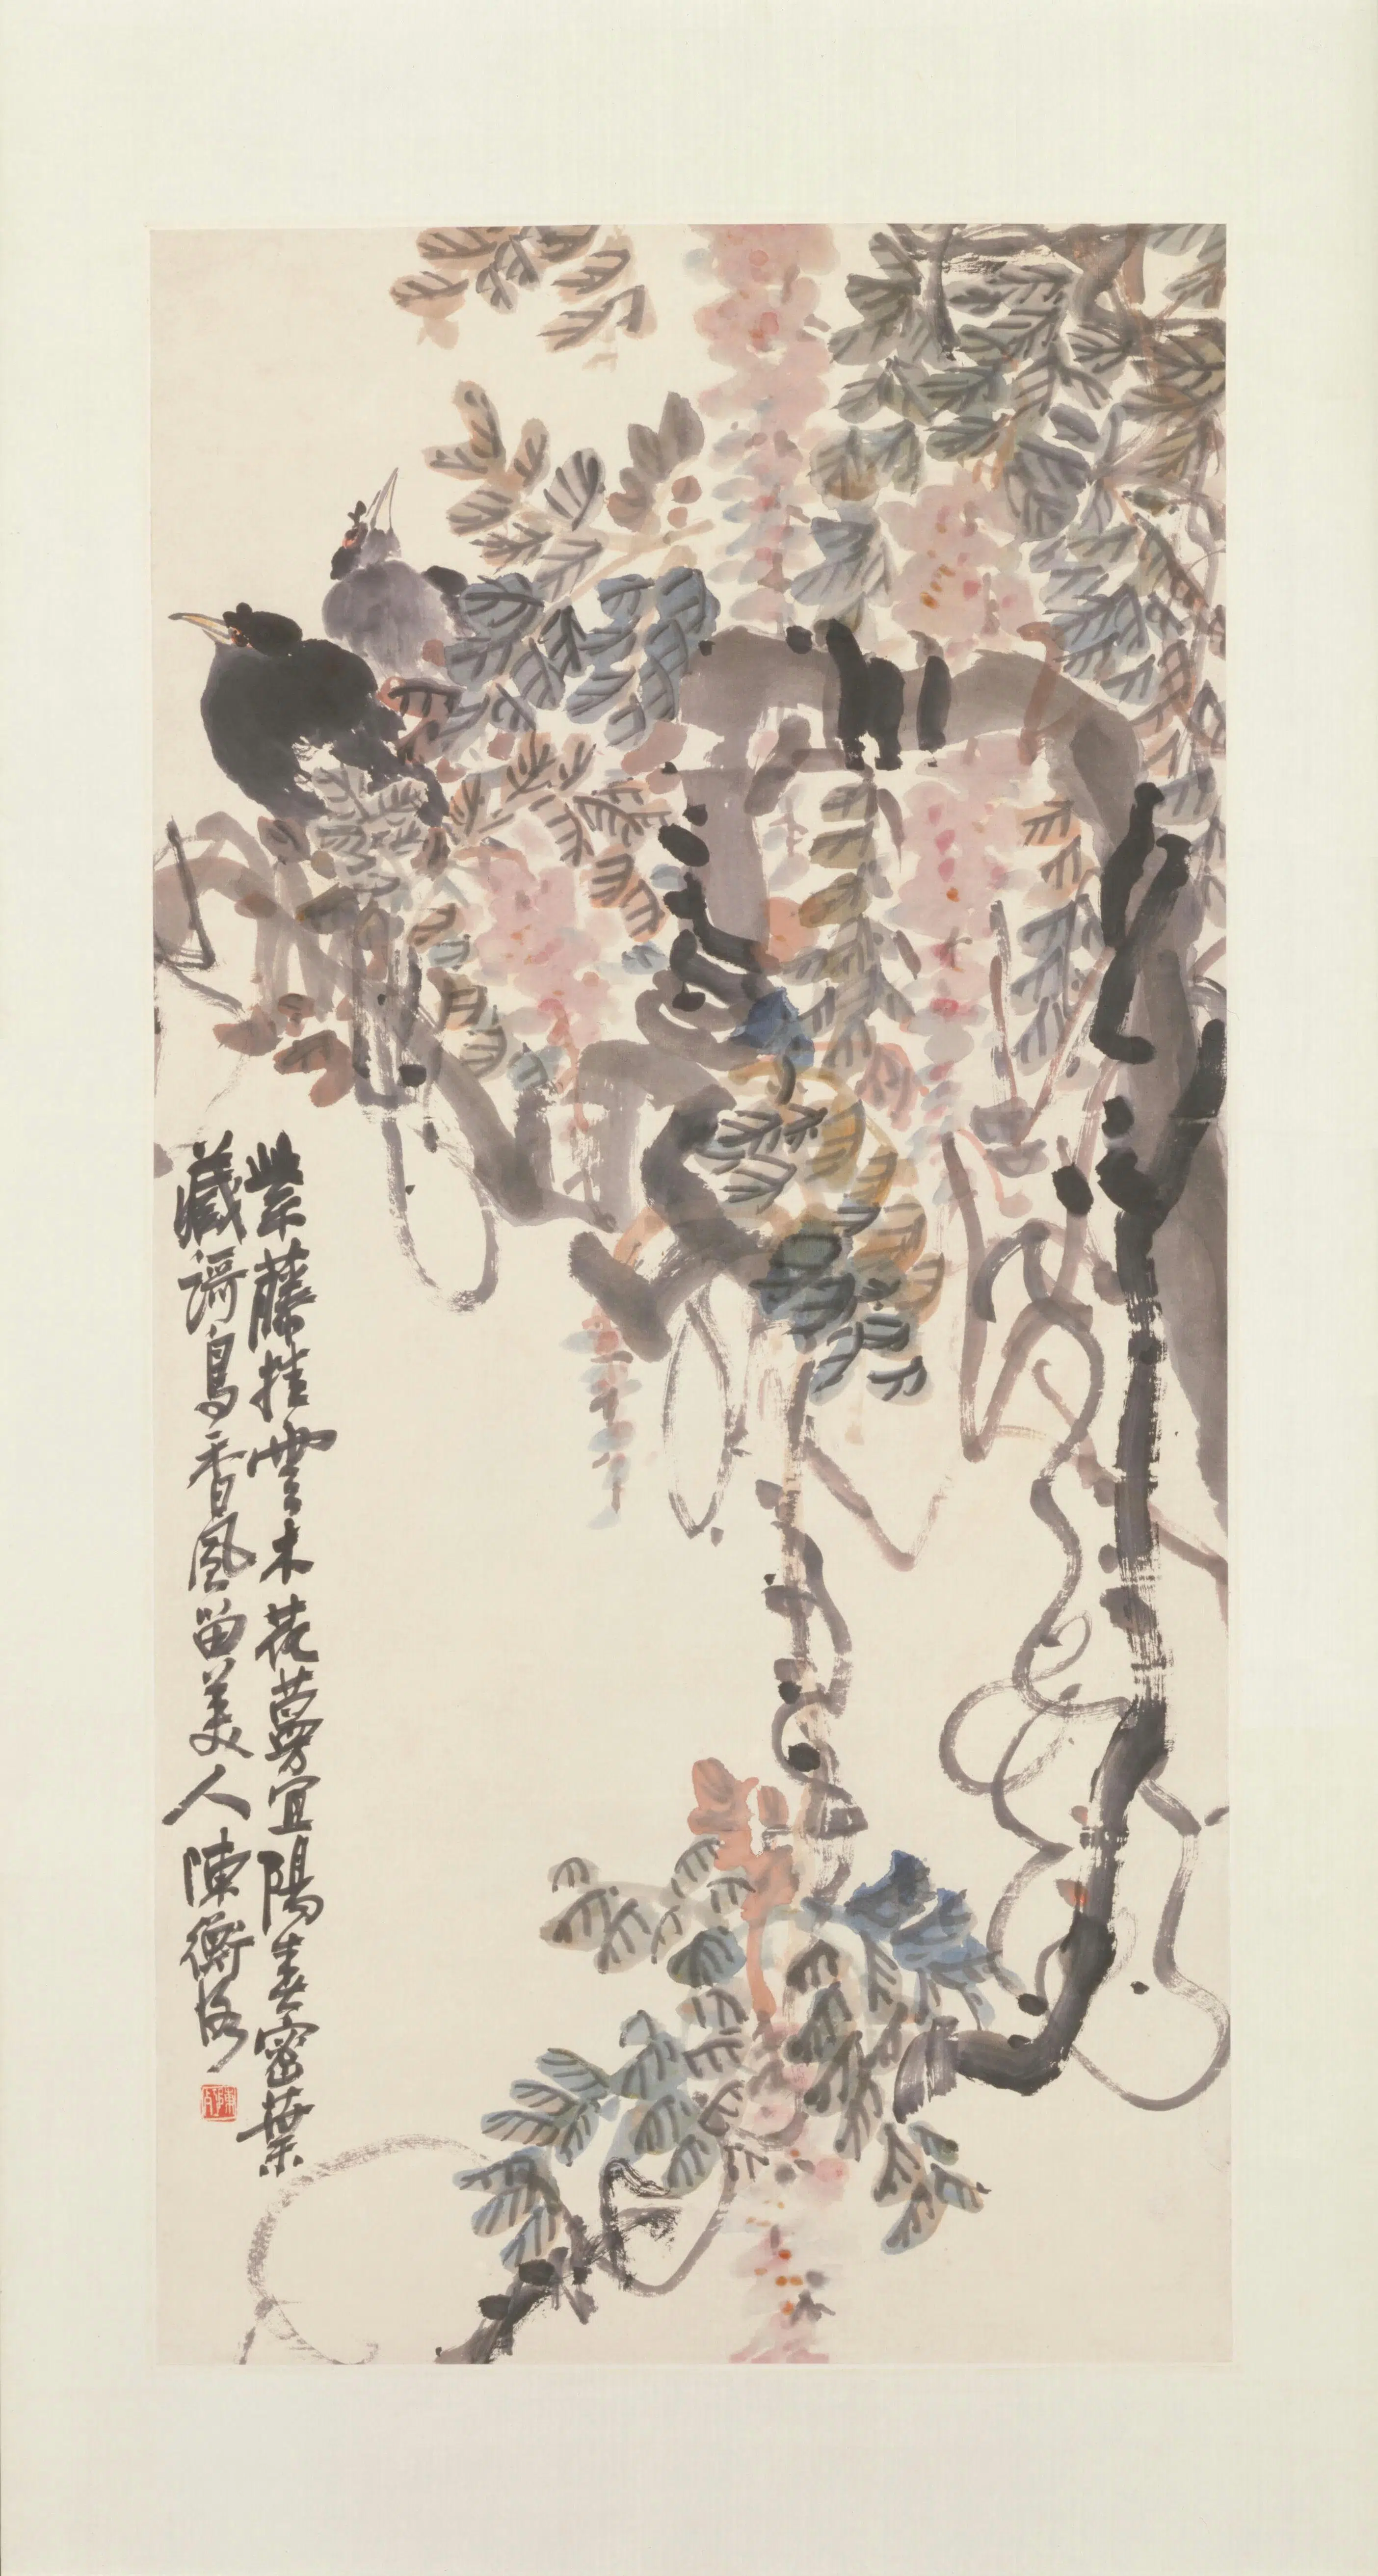 紫藤挂雲木花蔓宜陽春密葉
藏謌鳥香風留美人 陳衡恪